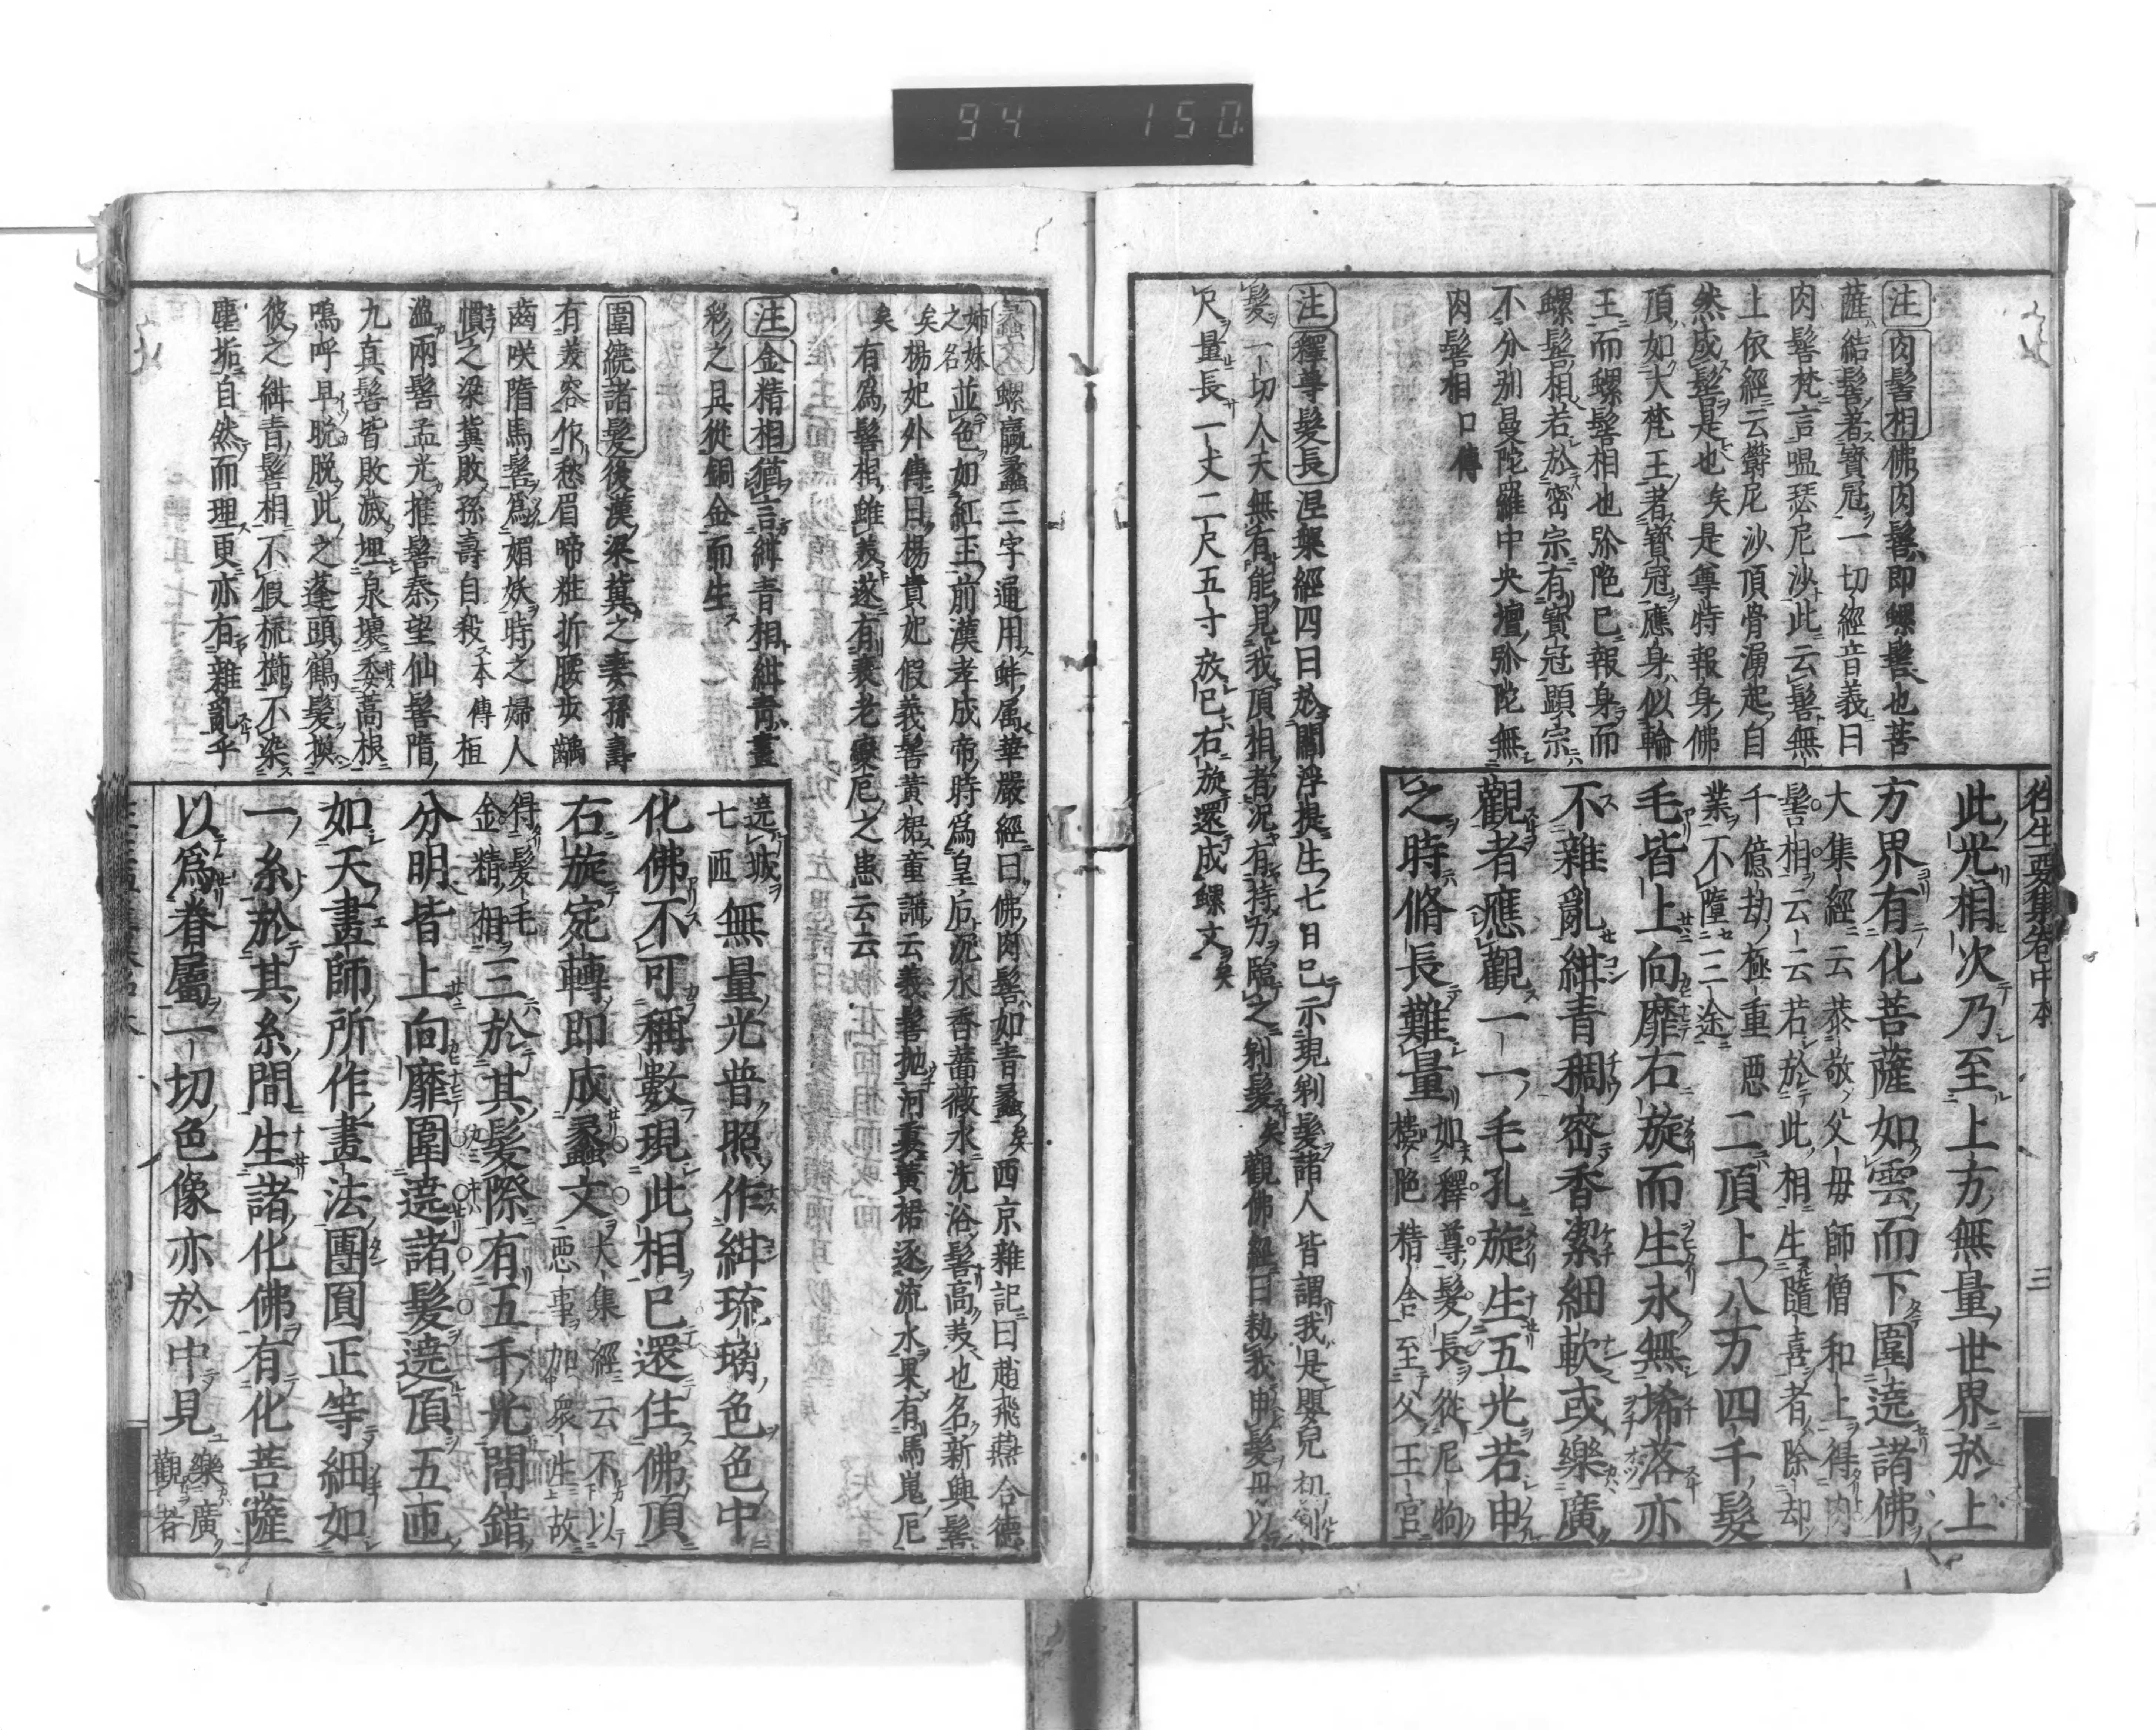 94 150
注 肉髻相佛肉髻即螺髻也菩
薩結髻者寳冠一切經音義曰
肉髻梵言嗢瑟尼沙此云髻無
上依經云欝尼沙頂骨涌起自
然成髻是也矣是尊特報身佛
頂如大梵王者寳冠應身似輪
王而螺髻相也弥陀已報身而
螺髻相若於密宗有寳冠顕宗
不分别曼陀羅中央壇弥陀無
肉髻相口傳
注 釋尊髮長 涅槃經四曰於閻浮提生七日已示現剃髮諸人皆謂我是嬰兒初剃
髮一切人天無有能見我頂相者况有持刀臨之剃髮矣觀佛經曰勅我申髮毋以
尺量長一丈二尺五寸放已右旋還成螺文矣
徃生要集卷中本 三
此光相次乃至上方無量世界於上
方界有化菩薩如雲而下圍遶諸佛
大集經云恭敬父毋師僧和上得肉
髻相云云若於此相生隨喜者除却
千億劫極重惡
業不墮三途
二頂上八万四千髮
毛皆上向靡右旋而生永無㛟落亦
不雜亂紺青稠密香潔細軟或樂廣
觀者應觀一一毛孔旋生五光若申
之時脩長難量
如釋尊髮長從尼狗
樓陀精舍至父王宮
蠡文 螺蠃蠡三字通用蚌属華嚴經曰佛肉髻如青蠡矣西京雜記曰趙飛燕合德
姉妹之名並色如紅玉前漢孝成帝時爲皇后沉水香薔薇水洗浴髻高美也名新興髻
矣楊妃外傳曰楊貴妃假義髻黄裙童謡云義髻抛河裏黄裙逐流水果有馬嵬厄
矣有爲髻相雖美遂有衰老變厄之患云云
注 金精相 猶言紺青相紺青畫
彩之具從銅金而生
圍繞諸髮 後漢梁冀之妻孫壽
有美容作愁眉啼粧折腰歩齲
齒咲隋馬髻爲媚妖時之婦人
慣之梁冀敗孫壽自殺本傳桓
温兩髻孟光推髻秦望仙髻隋
九真髻皆敗滅埋泉壤委蒿根
鳴呼早晩脱此之蓬頭鶴髮換
彼之紺青髻相不假梳櫛不染
塵垢自然而理更亦有雜亂乎
遶城
七匝
無量光普照作紺琉璃色色中
化佛不可稱數現此相已還住佛頂
右旋宛轉即成蠡文
大集經云不以
惡事加衆生故
得髮毛
金精相
三於其髮際有五千光間錯
分明皆上向靡圍遶諸髮遶頂五匝
如天畫師所作畫法團圎正等細如
一糸於其糸間生諸化佛有化菩薩
以爲眷屬一切色像亦於中見
樂廣
觀者